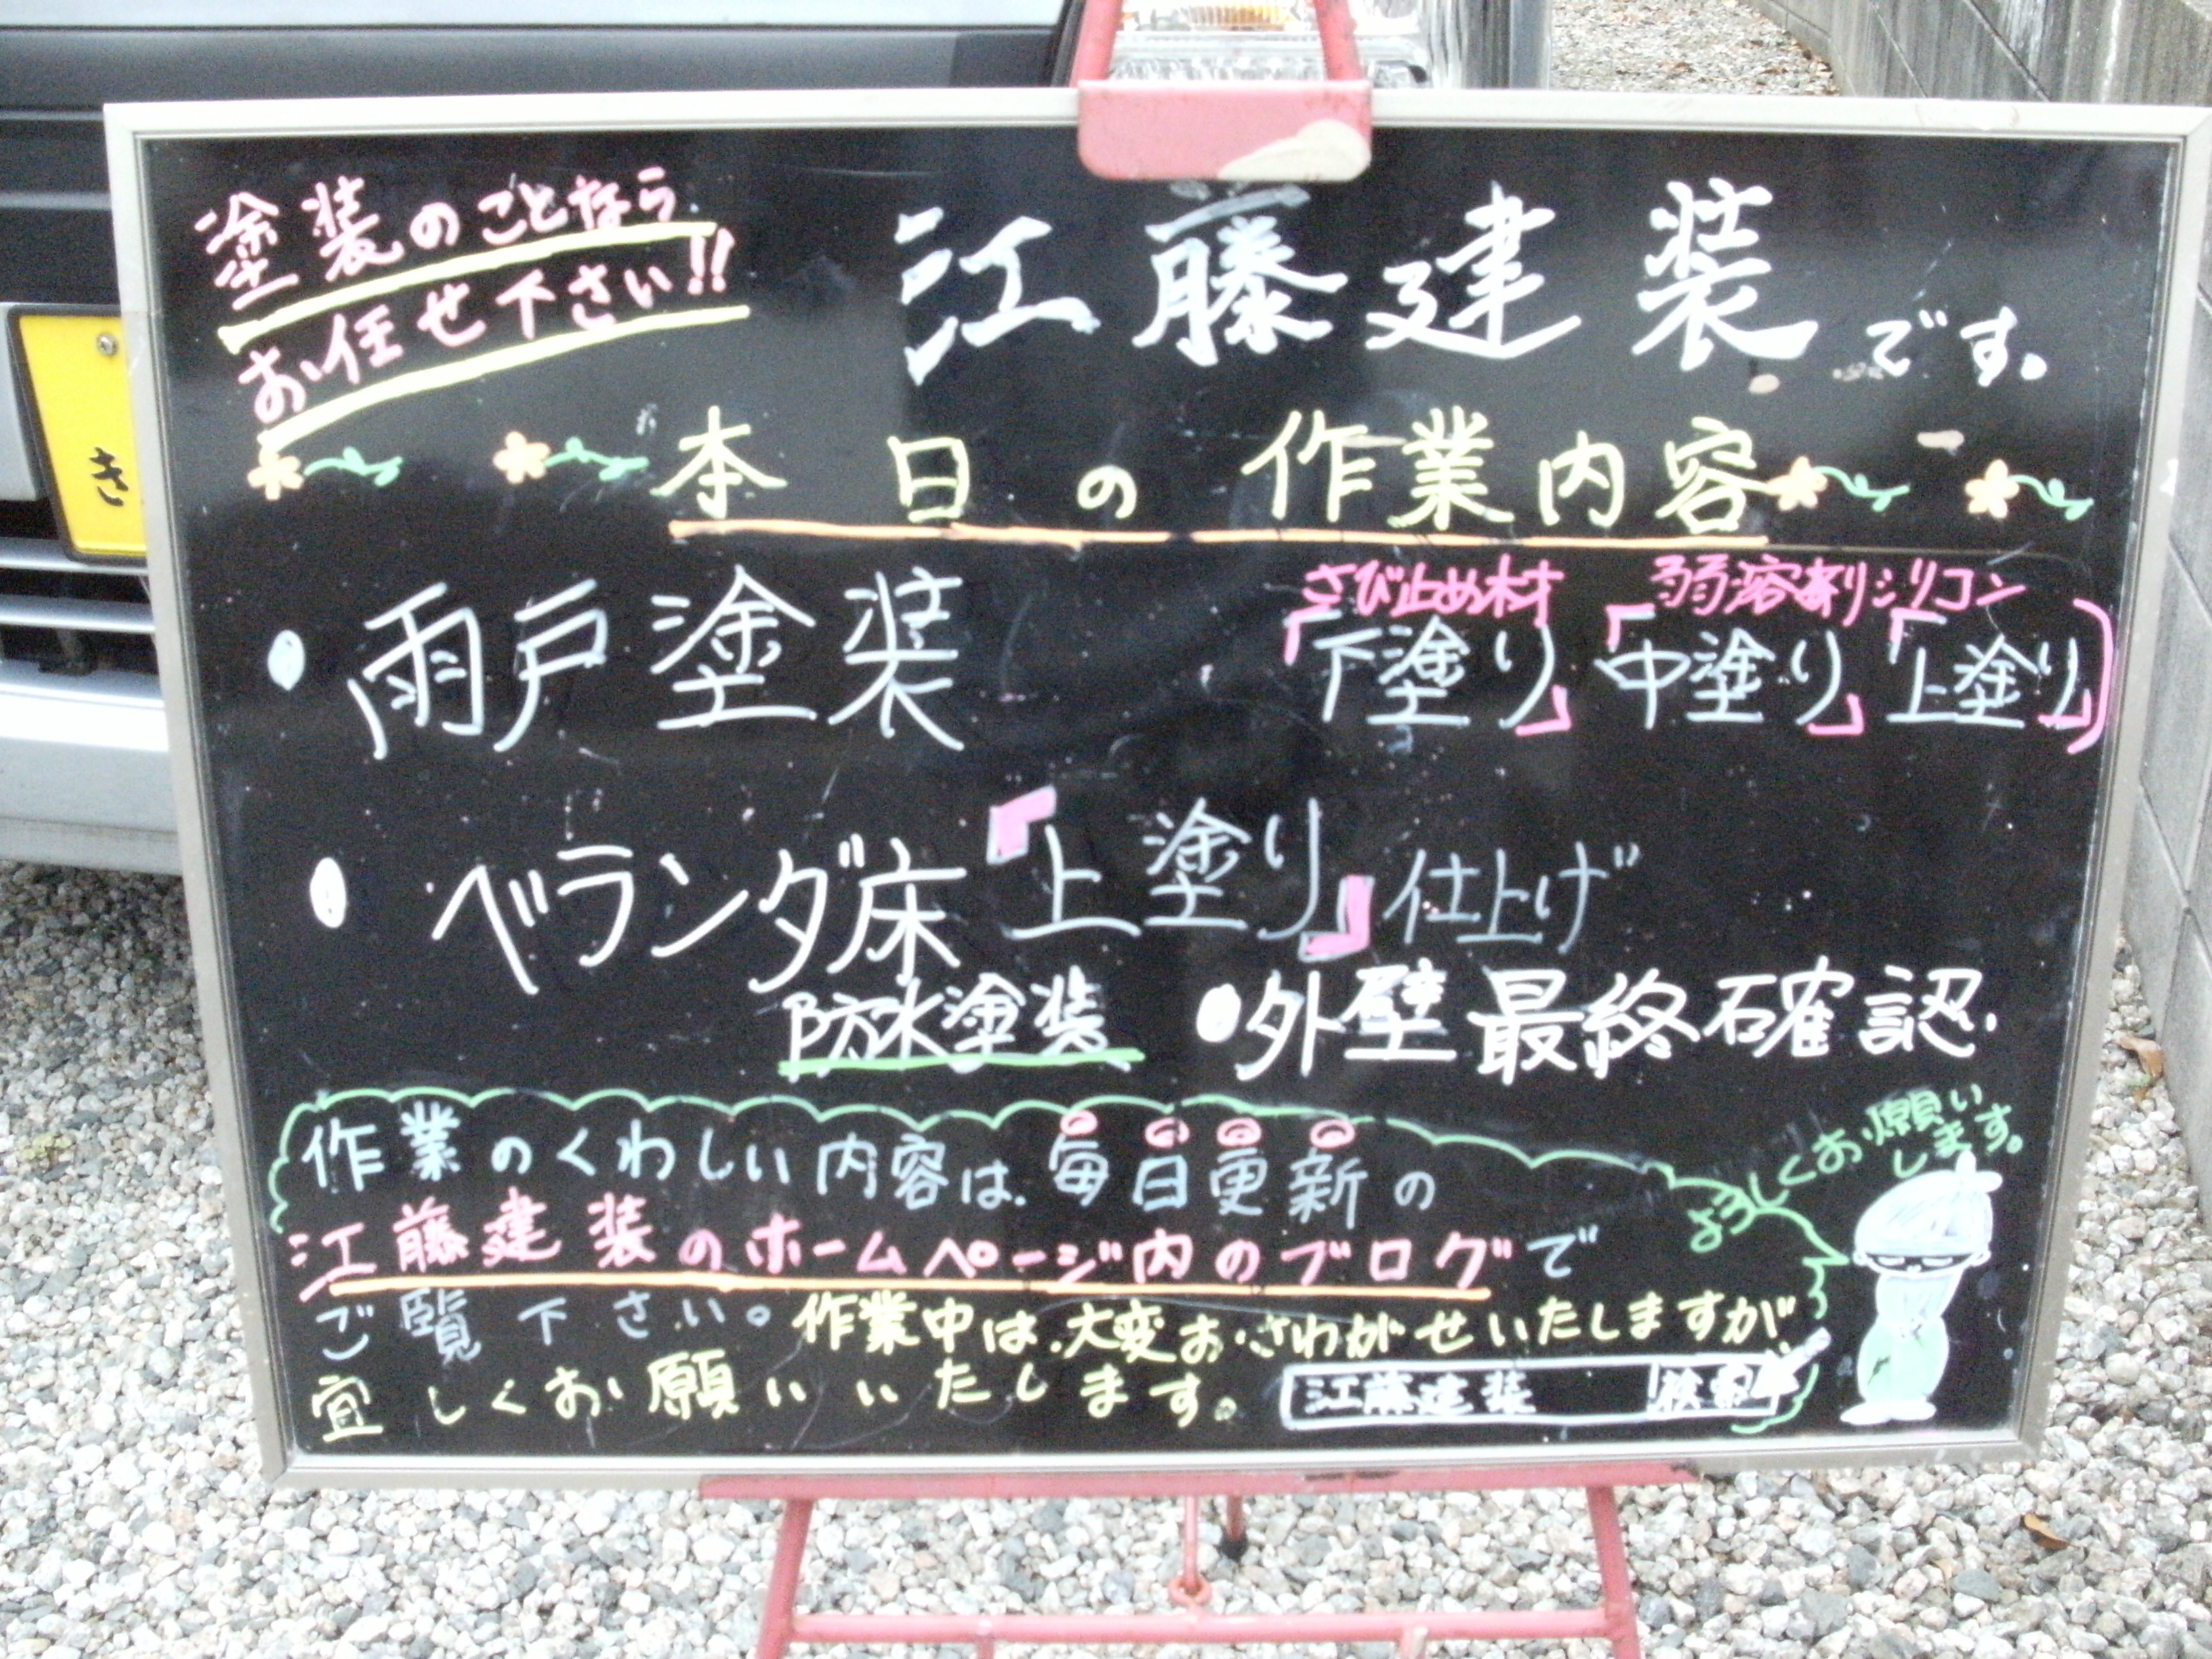 塗装のことなら
お任せ下さい!!
江藤建装です。
本日の作業内容
き
さび止め材 弱溶剤シリコン
・雨戸塗装 「下塗り」「中塗り」「上塗り」
・ベランダ床「上塗り」仕上げ
防水塗装 ・外壁最終確認.
作業のくわしい内容は、毎日更新の
江藤建装のホームページ内のブログで
ご覧下さい。作業中は、大変おさわがせいたしますが、
宜しくお願いいたします。
江藤建装 検索
よろしくお願い
します。